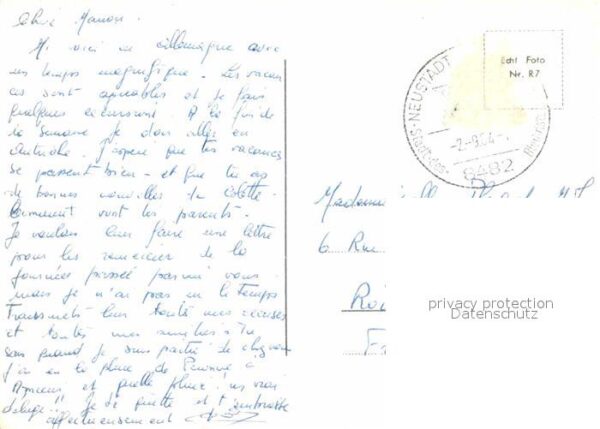 Chère Manou.
Me voici en Allemagne avec
un temps magnifique. Les vacan
ces sont agréables et je fais
quelques excursions. A la fin de
la semaine je dois aller en
Autriche. J'espère que tes vacances
se passent bien - et que tu as
de bonnes nouvelles de Colette.
Comment vont tes parents.
Je voulais leur faire une lettre
pour les remercier de la
journée passée parmi vous
mais je n'ai pas eu le temps
Transmets leur toutes mes excuses
et toutes mes amitiés. Tu
sais quand je suis partie de
j'ai eu la pluie de à
et quelle pluie: un vrai
déluge!! Je te quitte et t'embrasse
affectueusement
NEUSTADT
Stadt des
-2.-8.64.-
8482
Echt Foto
Nr. R7
Mademoiselle
6 Rue
privacy protection
Datenschutz